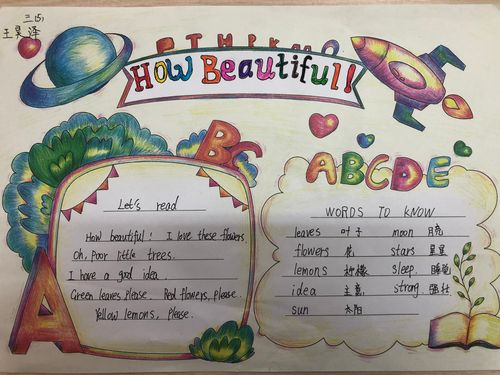 三(5)
王昊泽
How Beautiful!
Bc
ABCDE
A
Let's read
How beautiful! I love these flowers.
Oh, Poor little trees.
I have a good idea.
Green leaves, please. Red flowers, please.
Yellow lemons, Please.
WORDS TO KNOW
leaves 叶子 moon 月亮
flowers 花 stars 星星
lemons 柠檬 sleep 睡觉
idea 主意 strong 强壮
sun 太阳